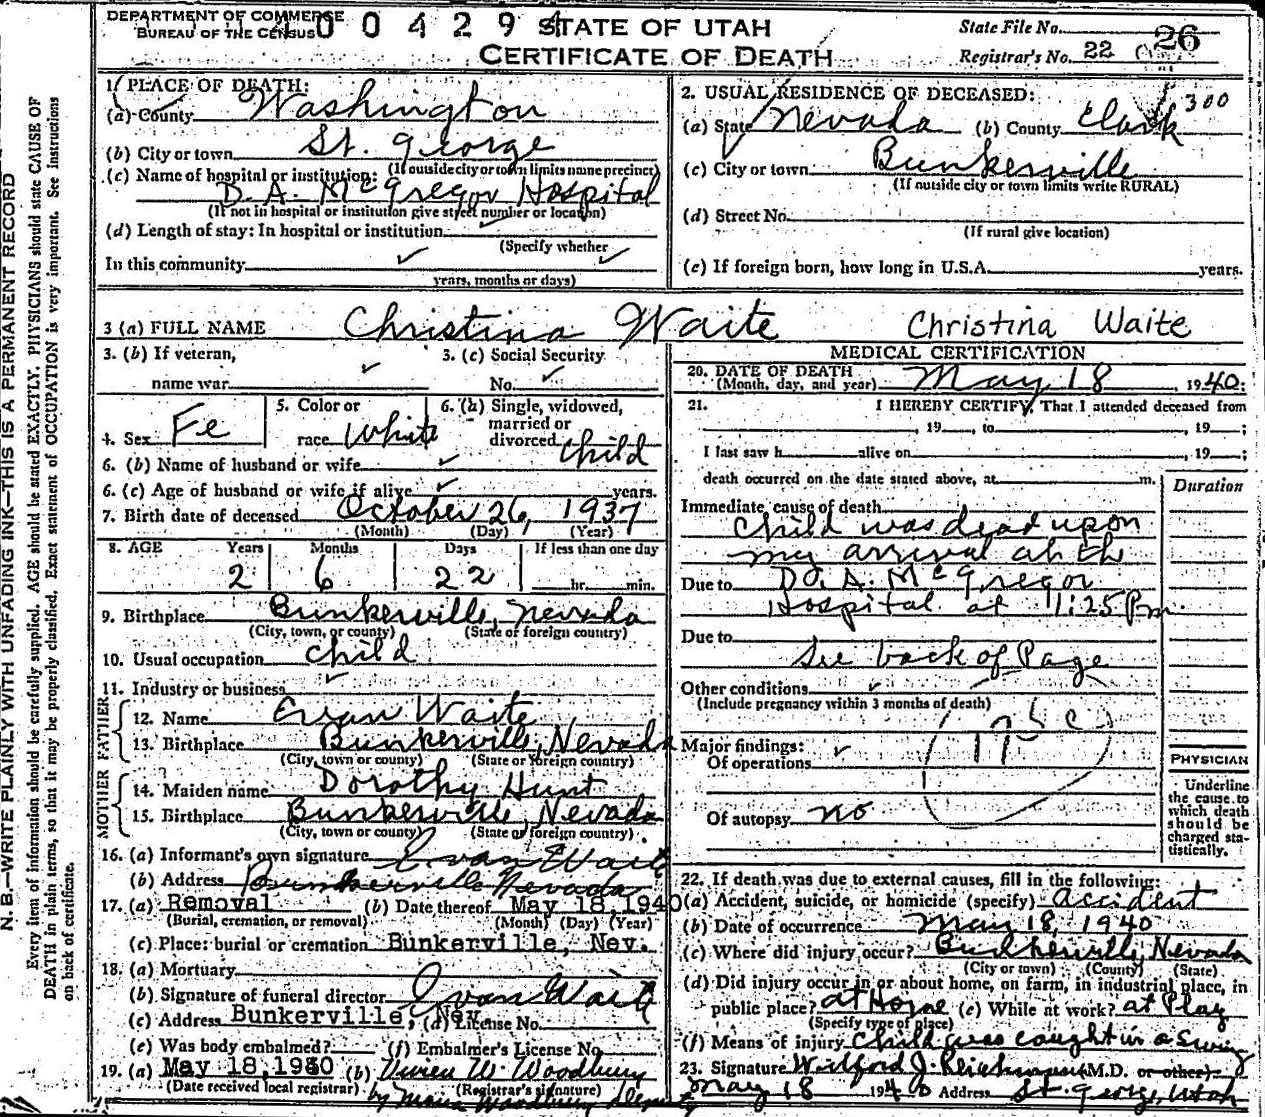 N. B.—WRITE PLAINLY WITH UNFADING INK—THIS IS A PERMANENT RECORD
Every item of information should be carefully supplied. AGE should be stated EXACTLY. PHYSICIANS should state CAUSE OF
DEATH in plain terms, so that it may be properly classified. Exact statement of OCCUPATION is very important. See instructions
on back of certificate.
DEPARTMENT OF COMMERCE
BUREAU OF THE CENSUS
0 0 4 2 9 4
STATE OF UTAH
CERTIFICATE OF DEATH
State File No. 26
Registrar's No. 22
1. PLACE OF DEATH:
(a) County Washington
(b) City or town St. George
(If outside city or town limits name precinct)
(c) Name of hospital or institution:
D. A. McGregor Hospital
(If not in hospital or institution give street number or location)
(d) Length of stay: In hospital or institution ✓
(Specify whether
In this community ✓ ✓
years, months or days)
2. USUAL RESIDENCE OF DECEASED:
300
(a) State Nevada (b) County Clark
(c) City or town Bunkerville
(If outside city or town limits write RURAL)
(d) Street No.
(If rural give location)
(e) If foreign born, how long in U.S.A. years.
3 (a) FULL NAME Christina Waite Christina Waite
3. (b) If veteran,
name war ✓
3. (c) Social Security
No. ✓
4. Sex Fe
5. Color or
race White
6. (a) Single, widowed,
married or
divorced Child
6. (b) Name of husband or wife ✓
6. (c) Age of husband or wife if alive ✓ years.
7. Birth date of deceased October 26, 1937
(Month) (Day) (Year)
8. AGE Years Months Days If less than one day
2 6 22 hr. min.
9. Birthplace Bunkerville, Nevada
(City, town, or county) (State or foreign country)
10. Usual occupation Child
11. Industry or business ✓
FATHER
12. Name Evan Waite
13. Birthplace Bunkerville, Nevada
(City, town or county) (State or foreign country)
MOTHER
14. Maiden name Dorothy Hunt
15. Birthplace Bunkerville, Nevada
(City, town or county) (State or foreign country)
16. (a) Informant's own signature Evan Waite
(b) Address Bunkerville Nevada
17. (a) Removal (b) Date thereof May 18 1940
(Burial, cremation, or removal) (Month) (Day) (Year)
(c) Place: burial or cremation Bunkerville, Nev.
18. (a) Mortuary
(b) Signature of funeral director Evan Waite
(c) Address Bunkerville, Nev. (d) License No.
(e) Was body embalmed? (f) Embalmer's License No.
19. (a) May 18, 1940 (b) Vivien W. Woodbury
(Date received local registrar) (Registrar's signature)
by Maria Woodbury Deputy
MEDICAL CERTIFICATION
20. DATE OF DEATH
(Month, day, and year) May 18, 1940;
21. I HEREBY CERTIFY, That I attended deceased from
, 19 , to , 19 ;
I last saw h alive on , 19 ;
death occurred on the date stated above, at m.
Duration
Immediate cause of death
Child was dead upon
my arrival at the
Due to D. A. McGregor
Hospital at 1:25 Pm
Due to
See back of Page
Other conditions ✓
(Include pregnancy within 3 months of death)
Major findings:
Of operations ✓
Of autopsy no
PHYSICIAN
Underline
the cause to
which death
should be
charged sta-
tistically.
22. If death was due to external causes, fill in the following:
(a) Accident, suicide, or homicide (specify) Accident
(b) Date of occurrence May 18, 1940
(c) Where did injury occur? Bunkerville, Nevada
(City or town) (County) (State)
(d) Did injury occur in or about home, on farm, in industrial place, in
public place? at Home (e) While at work? at Play
(Specify type of place)
(f) Means of injury Child was caught in a swing
23. Signature Wilford J. Reichmann (M.D. or other)
May 18 1940 Address St. George, Utah